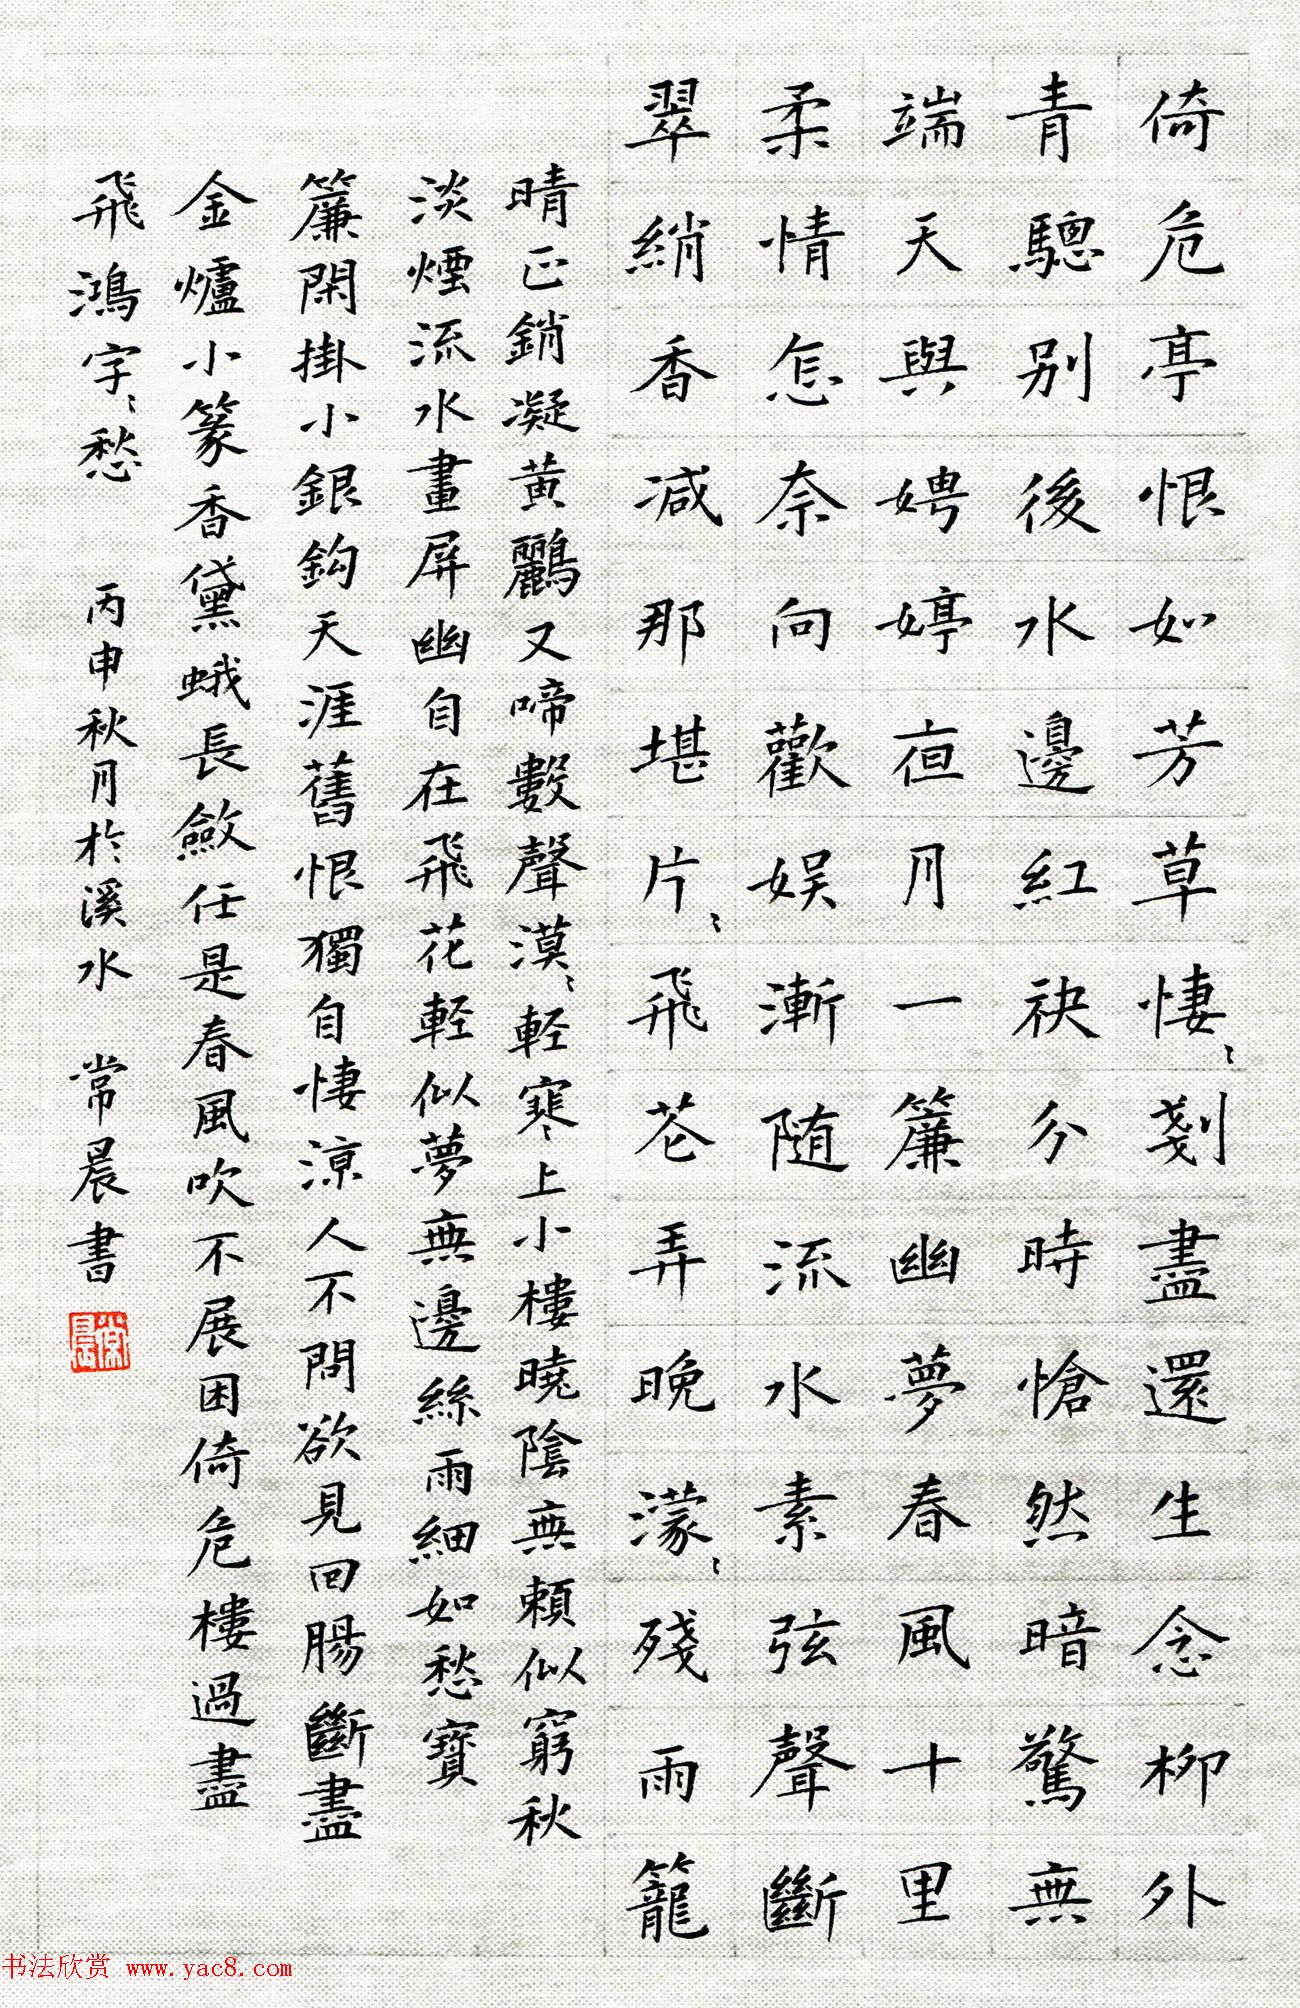 倚危亭恨如芳草悽〻剗盡還生念柳外
青驄别後水邊紅袂分時愴然暗驚無
端天與娉婷夜月一簾幽夢春風十里
柔情怎奈向歡娱漸随流水素弦聲斷
翠綃香减那堪片〻飛花弄晚濛〻殘雨籠
晴正銷凝黄鸝又啼數聲漠〻輕寒上小樓曉陰無賴似窮秋
淡煙流水畫屏幽自在飛花輕似夢無邊絲雨細如愁寳
簾閑掛小銀鈎天涯舊恨獨自悽涼人不問欲見回腸斷盡
金爐小篆香黛蛾長斂任是春風吹不展困倚危樓過盡
飛鴻字〻愁 丙申秋月於溪水 常晨書
常晨
书法欣赏 www.yac8.com